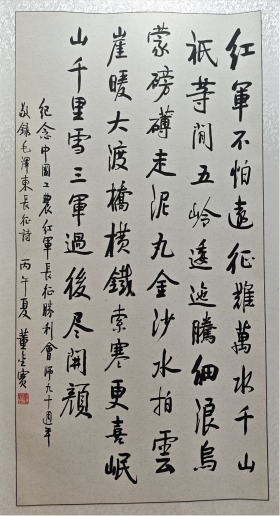 紅軍不怕遠征難萬水千山
祇等閒五岭逶迤騰細浪烏
蒙磅礡走泥丸金沙水拍雲
崖暖大渡橋橫鐵索寒更喜岷
山千里雪三軍過後尽開顏
紀念中国工農红軍長征勝利會師九十週年
敬錄毛澤東長征詩 丙午夏 董